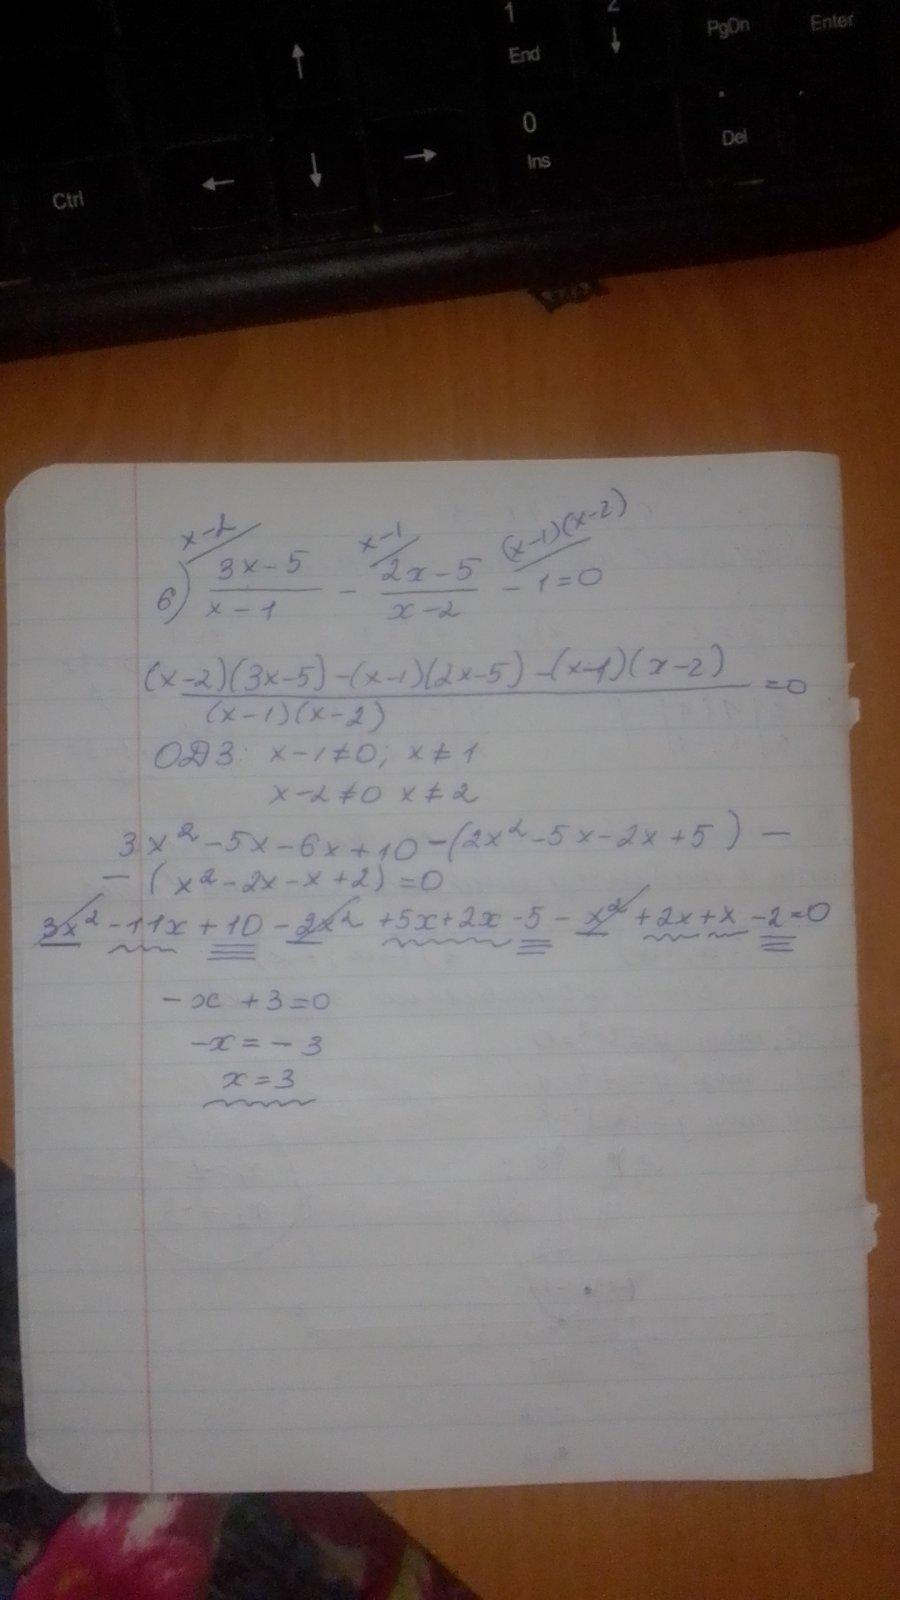 1 2
End ↓ PgDn Enter
↑
0 .
Ins Del
Ctrl ← ↓ →
x-2 x-1 (x-1)(x-2)
6) 3x-5 / x-1 - 2x-5 / x-2 - 1=0
(x-2)(3x-5)-(x-1)(2x-5)-(x-1)(x-2) / (x-1)(x-2) =0
ОДЗ: x-1≠0; x≠1
x-2≠0 x≠2
3x²-5x-6x+10-(2x²-5x-2x+5) -
- (x²-2x-x+2)=0
3x²-11x+10-2x²+5x+2x-5-x²+2x+x-2=0
-x+3=0
-x=-3
x=3